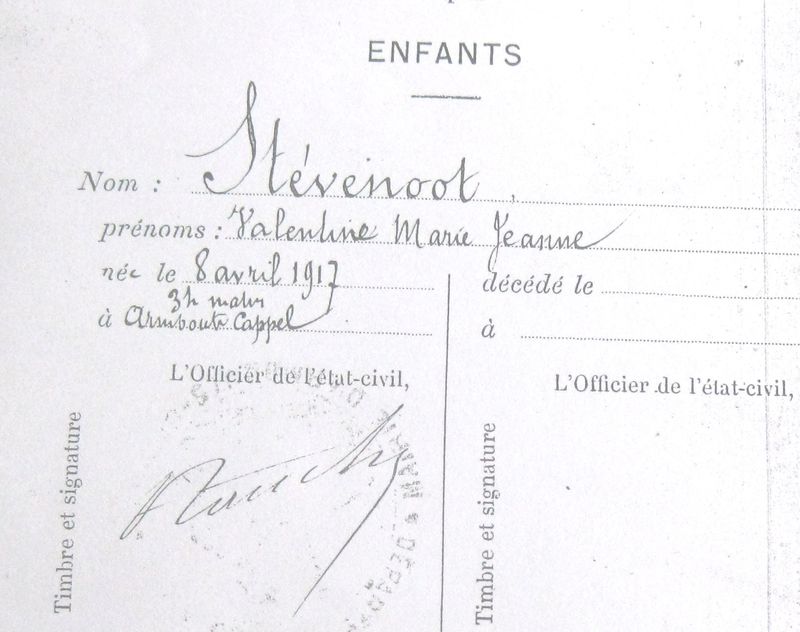 ENFANTS
Nom : Stévenoot
prénoms : Valentine Marie Jeanne
née le 8 avril 1917
3h matin
à Armbouts Cappel
décédé le
à
L'Officier de l'état-civil,
L'Officier de l'état-civil,
Timbre et signature
Timbre et signature
MAIRIE